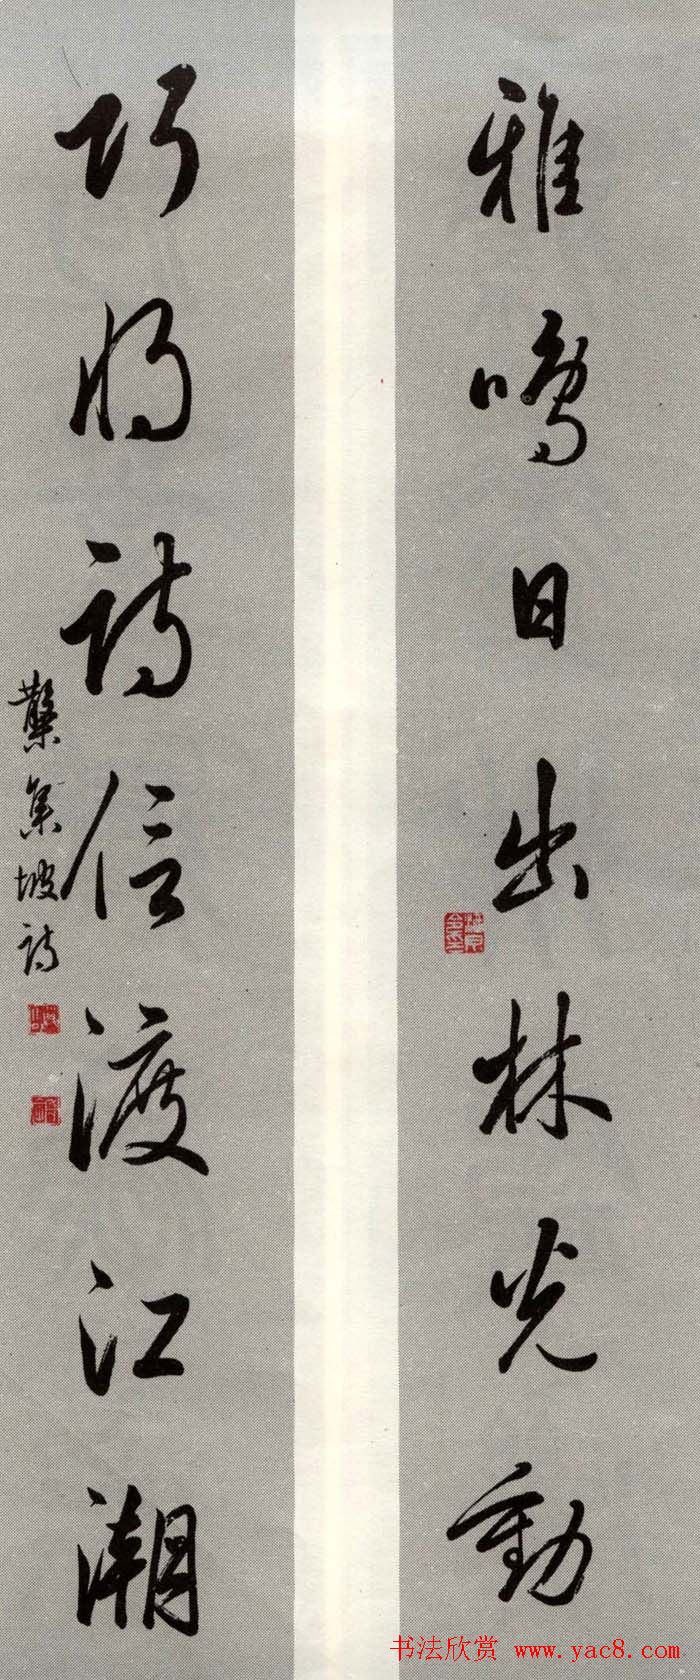 雅鳴日出林光動
巧將詩信渡江潮
集坡詩
书法欣赏 www.yac8.com